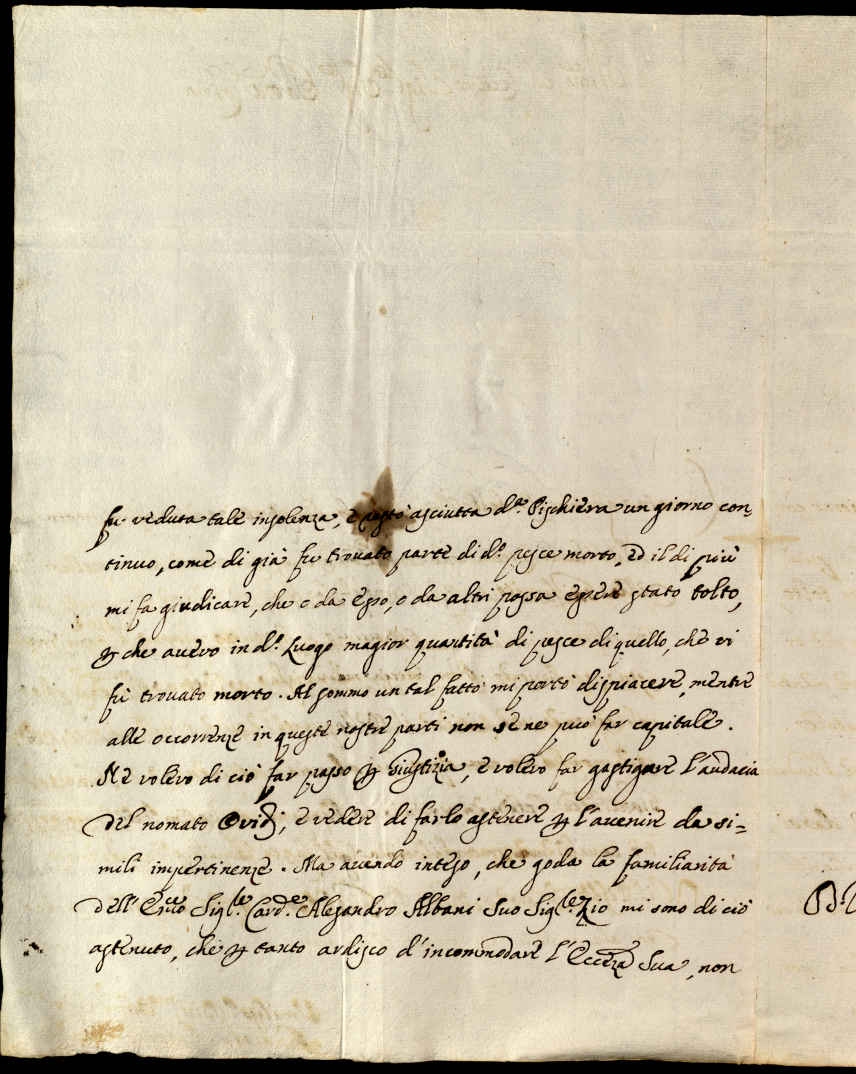 fu veduta tale insolenza, e restò asciutta d.ª Pischiera un giorno con=
tinuo, come di già fu trovato parte di d.º pesce morto, ed il di più
mi fa giudicare, che o da esso, o da altri possa essere stato tolto,
che avevo in d.º Luogo magior quantità di pesce di quello, che vi
fù trovato morto. Al sommo un tal fatto mi portò dispiacere, mentre
alle occorrenze in queste nostre parti non se ne può far capitale.
Ne volevo di ciò far passo Giustizia, e volevo far gastigare l'audacia
del nomato Ovidj, e vedere di farlo astenere l'avenire da si=
mili impertinenze. Ma avendo inteso, che goda la familiarità
dell' Sig.le Card.e Alesandro Albani Suo Sig.le Zio mi sono di ciò
astenuto, che tanto ardisco d'incommodare l'Eccza Sua, non